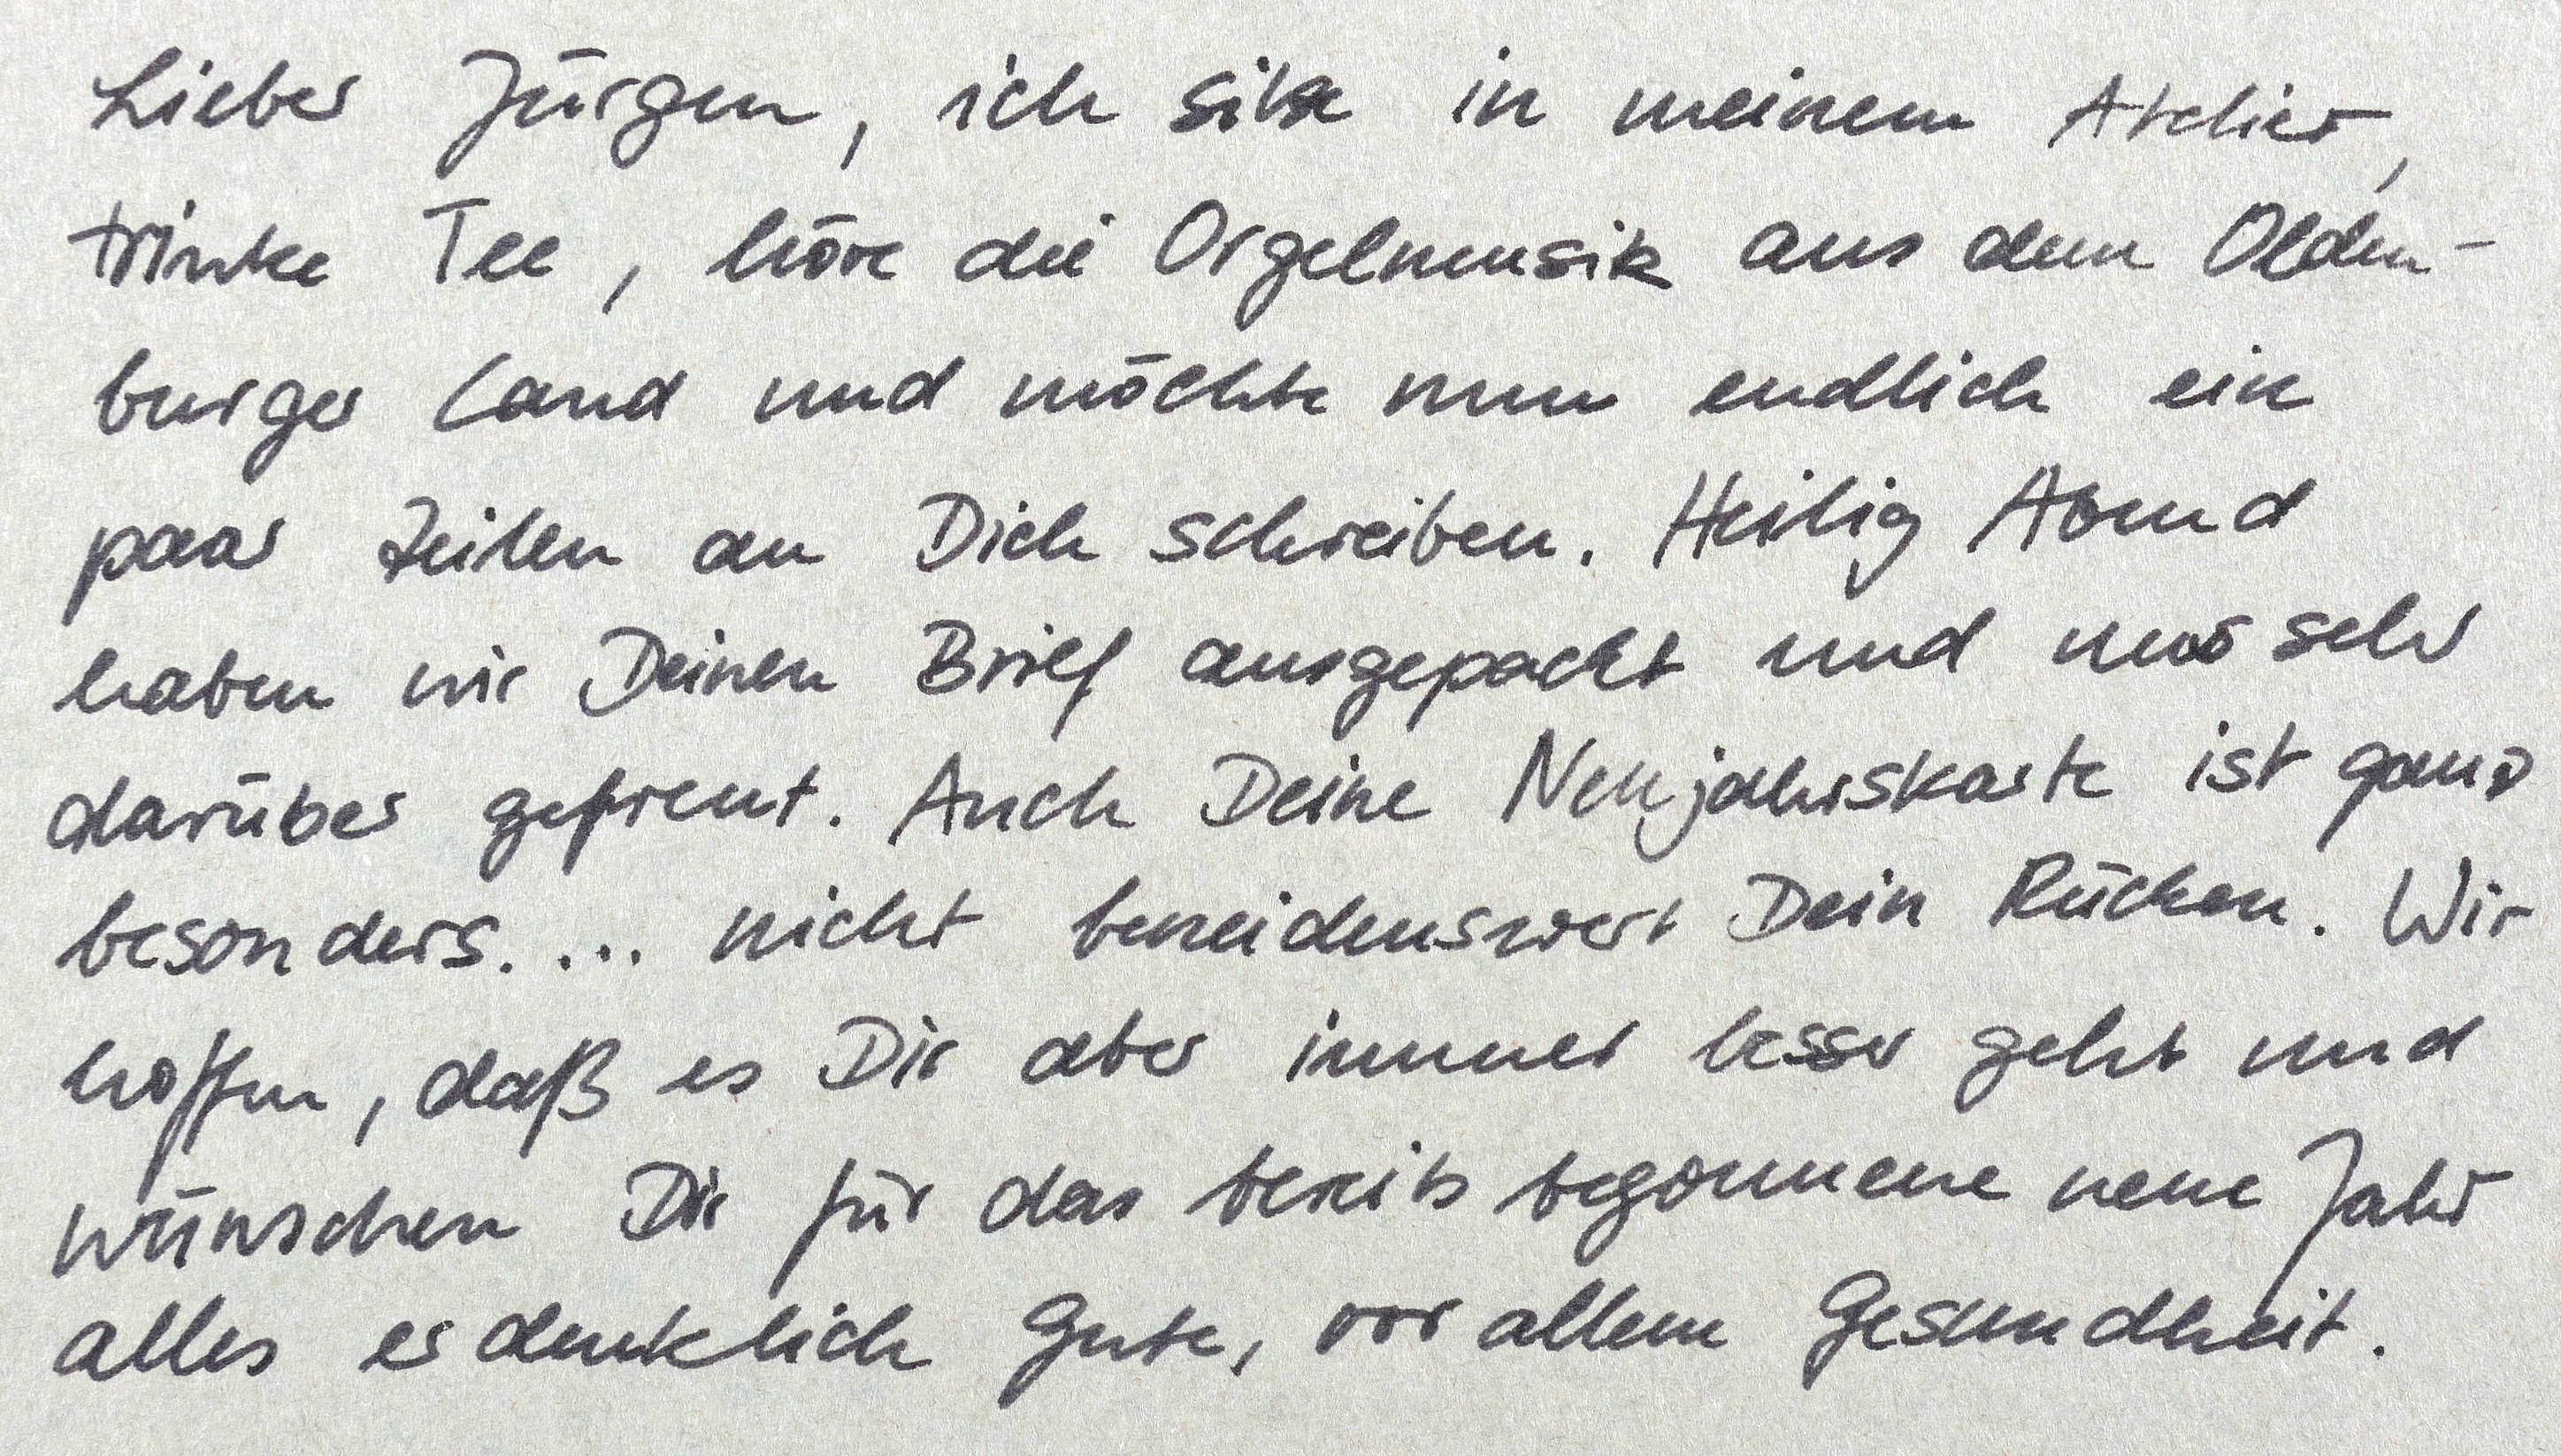 Lieber Jürgen, ich sitze in meinem Atelier,
trinke Tee, höre die Orgelmusik aus dem Olden-
burger Land und möchte nun endlich ein
paar Zeilen an Dich schreiben. Heilig Abend
haben wir Deinen Brief ausgepackt und uns sehr
darüber gefreut. Auch Deine Neujahrskarte ist ganz
besonders. ... nicht beneidenswert Dein Rücken. Wir
hoffen, daß es Dir aber immer besser geht und
wünschen Dir für das bereits begonnene neue Jahr
alles erdenklich Gute, vor allem Gesundheit.